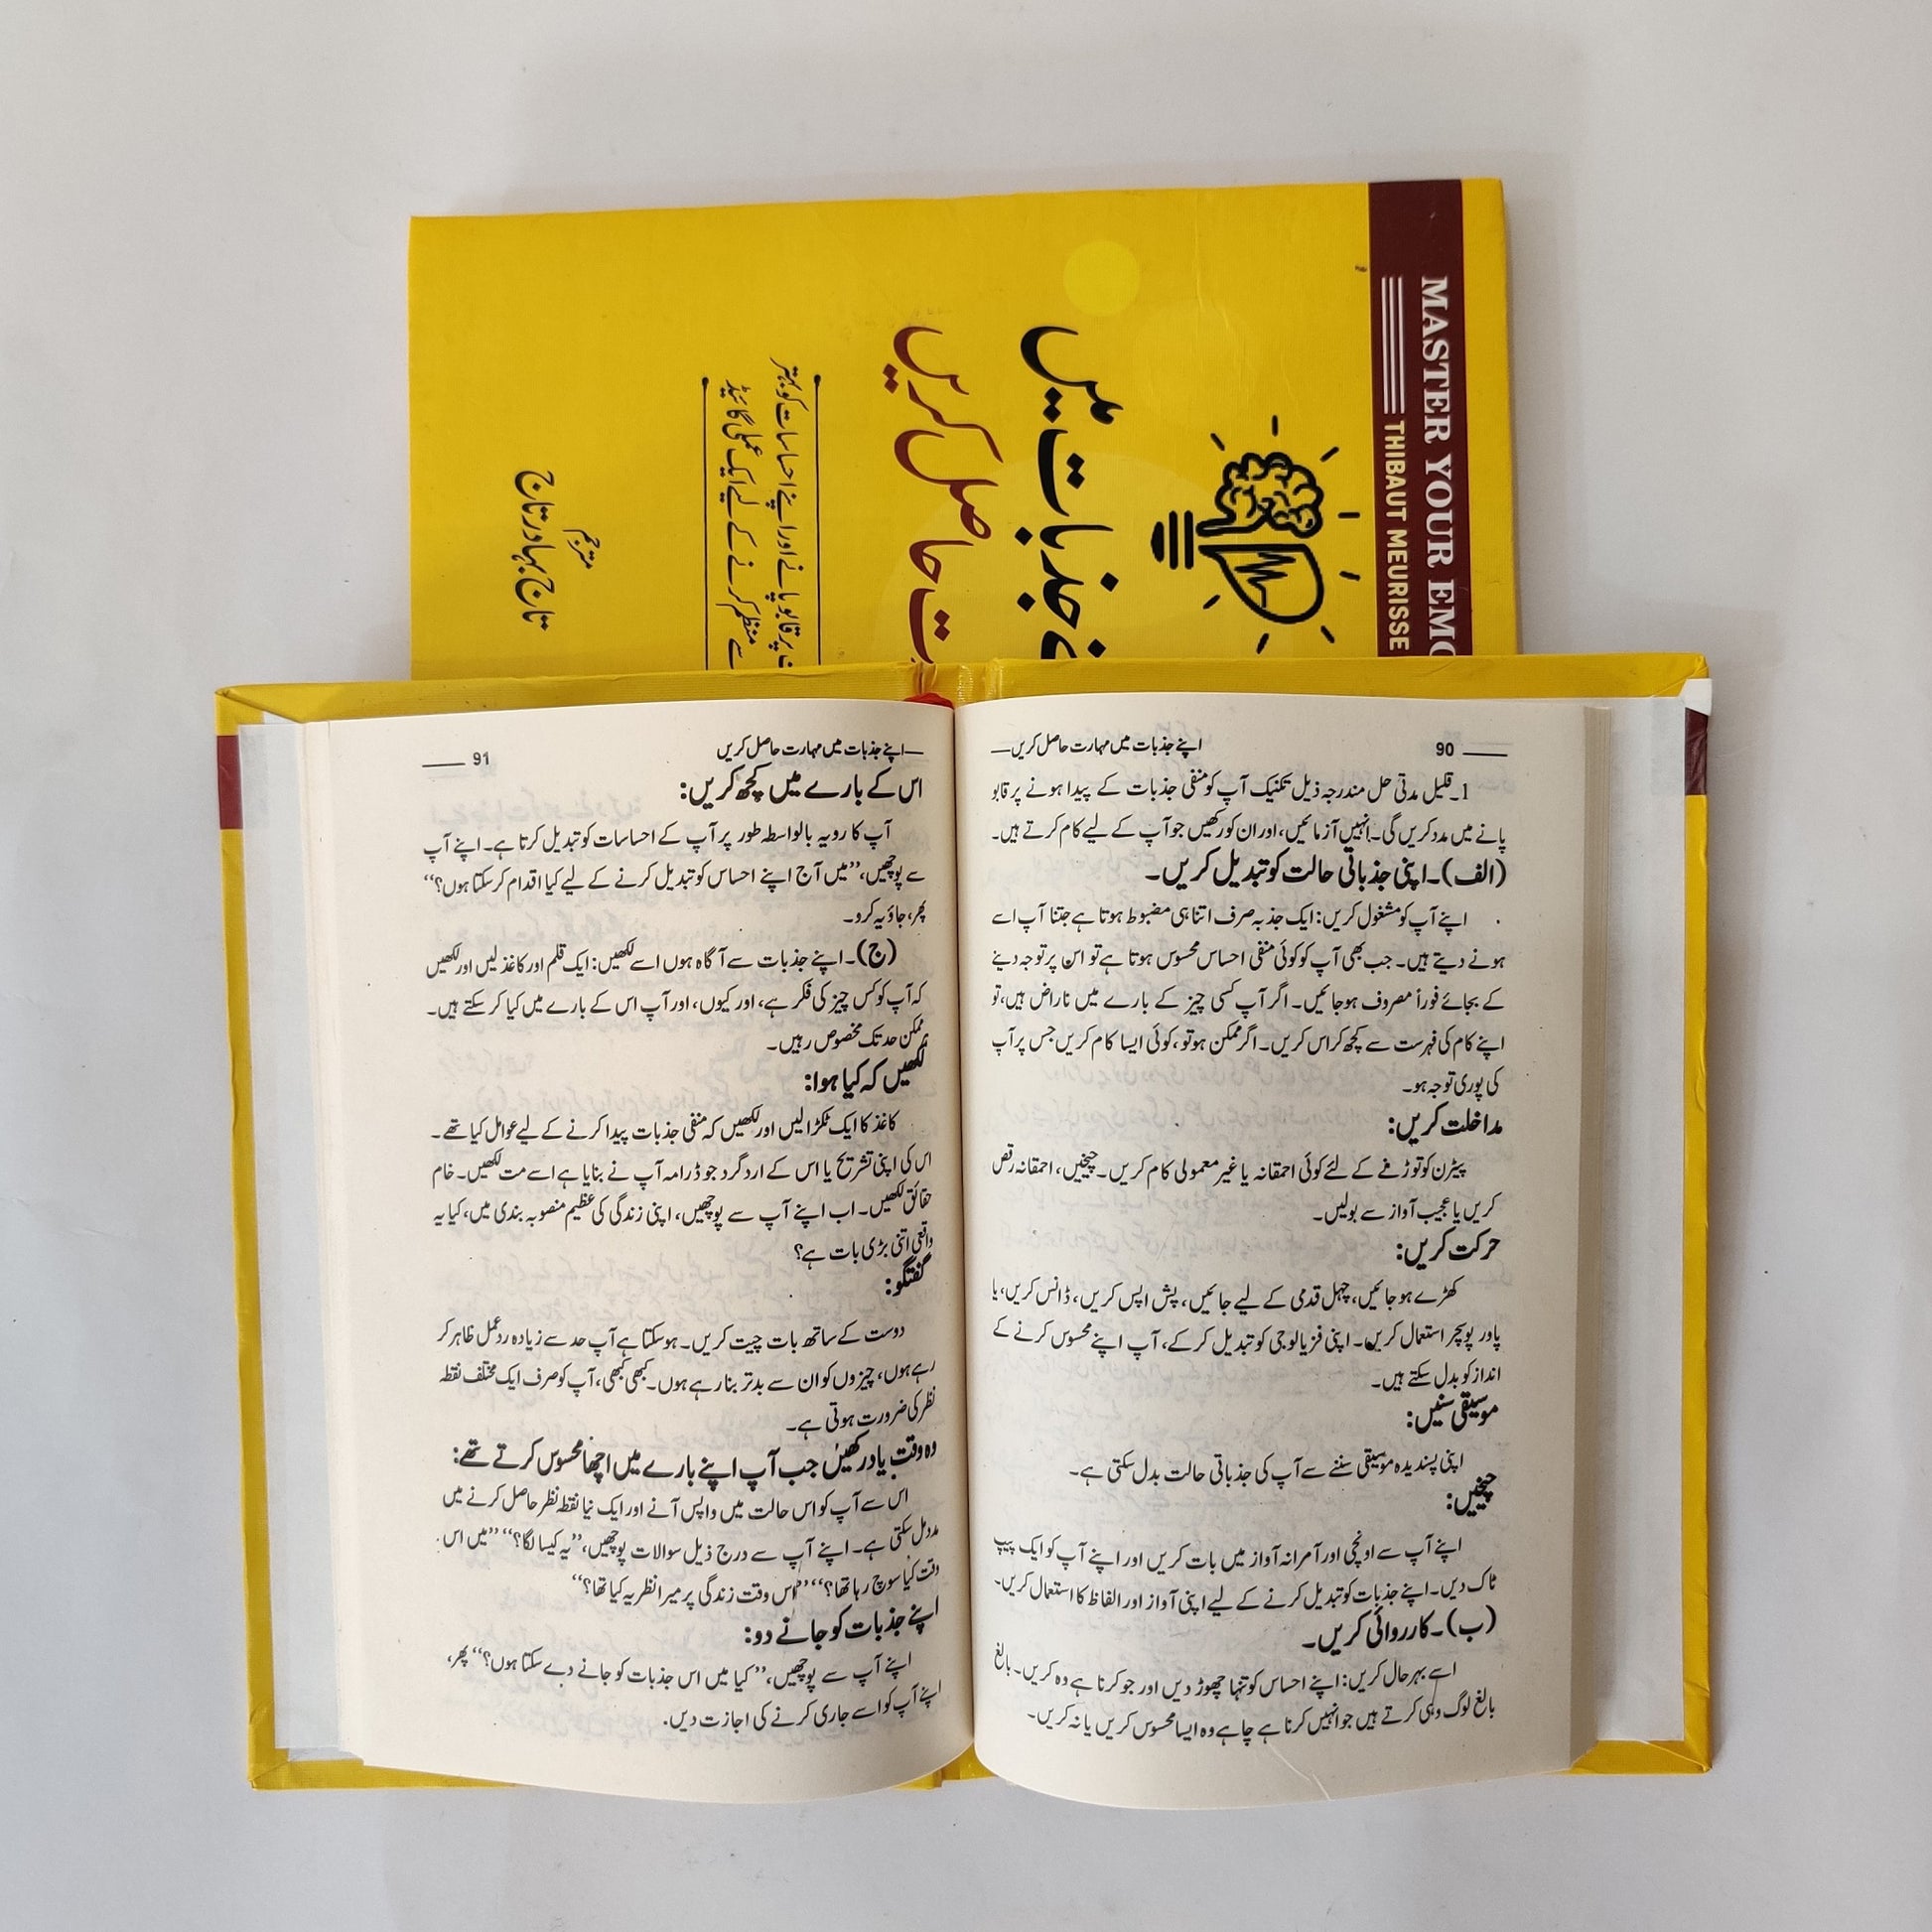 MASTER YOUR EMO
THIBAUT MEURISSE
جذبات میں
حاصل کریں
پر قابو پانے اور اپنے احساسات کو بہتر
سے منظم کرنے کے لیے ایک عملی گائیڈ
مترجم
تاج بہادر تاج
90 اپنے جذبات میں مہارت حاصل کریں
1۔قلیل مدتی حل مندرجہ ذیل تکنیک آپ کو منفی جذبات کے پیدا ہونے پر قابو
پانے میں مدد کریں گی۔ انہیں آزمائیں، اور ان کو رکھیں جو آپ کے لیے کام کرتے ہیں۔
(الف)۔ اپنی جذباتی حالت کو تبدیل کریں۔
اپنے آپ کو مشغول کریں: ایک جذبہ صرف اتنا ہی مضبوط ہوتا ہے جتنا آپ اسے
ہونے دیتے ہیں۔ جب بھی آپ کو کوئی منفی احساس محسوس ہوتا ہے تو اس پر توجہ دینے
کے بجائے فوراً مصروف ہو جائیں۔ اگر آپ کسی چیز کے بارے میں ناراض ہیں، تو
اپنے کام کی فہرست سے کچھ کراس کریں۔ اگر ممکن ہو تو، کوئی ایسا کام کریں جس پر آپ
کی پوری توجہ ہو۔
مداخلت کریں:
پیٹرن کو توڑنے کے لئے کوئی احمقانہ یا غیر معمولی کام کریں۔ چیخیں، احمقانہ رقص
کریں یا عجیب آواز سے بولیں۔
حرکت کریں:
کھڑے ہو جائیں، چہل قدمی کے لیے جائیں، پش اپس کریں، ڈانس کریں، یا
پاور پوسچر استعمال کریں۔ اپنی فزیالوجی کو تبدیل کر کے، آپ اپنے محسوس کرنے کے
انداز کو بدل سکتے ہیں۔
موسیقی سنیں:
اپنی پسندیدہ موسیقی سننے سے آپ کی جذباتی حالت بدل سکتی ہے۔
چیخیں:
اپنے آپ سے اونچی اور آمرانہ آواز میں بات کریں اور اپنے آپ کو ایک پیپ
ٹاک دیں۔ اپنے جذبات کو تبدیل کرنے کے لیے اپنی آواز اور الفاظ کا استعمال کریں۔
(ب)۔ کارروائی کریں۔
اسے بہر حال کریں: اپنے احساس کو تنہا چھوڑ دیں اور جو کرنا ہے وہ کریں۔ بالغ
بالغ لوگ وہی کرتے ہیں جو انہیں کرنا ہے چاہے وہ ایسا محسوس کریں یا نہ کریں۔
اپنے جذبات میں مہارت حاصل کریں 91
اس کے بارے میں کچھ کریں:
آپ کا رویہ بالواسطہ طور پر آپ کے احساسات کو تبدیل کرتا ہے۔ اپنے آپ
سے پوچھیں، ’’میں آج اپنے احساس کو تبدیل کرنے کے لیے کیا اقدام کر سکتا ہوں؟‘‘
پھر، جاؤ یہ کرو۔
(ج)۔ اپنے جذبات سے آگاہ ہوں اسے لکھیں: ایک قلم اور کاغذ لیں اور لکھیں
کہ آپ کو کس چیز کی فکر ہے، اور کیوں، اور آپ اس کے بارے میں کیا کر سکتے ہیں۔
ممکن حد تک مخصوص رہیں۔
لکھیں کہ کیا ہوا:
کاغذ کا ایک ٹکڑا لیں اور لکھیں کہ منفی جذبات پیدا کرنے کے لیے عوامل کیا تھے۔
اس کی اپنی تشریح یا اس کے ارد گرد جو ڈرامہ آپ نے بنایا ہے اسے مت لکھیں۔ خام
حقائق لکھیں۔ اب اپنے آپ سے پوچھیں، اپنی زندگی کی عظیم منصوبہ بندی میں، کیا یہ
واقعی اتنی بڑی بات ہے؟
گفتگو:
دوست کے ساتھ بات چیت کریں۔ ہو سکتا ہے آپ حد سے زیادہ ردعمل ظاہر کر
رہے ہوں، چیزوں کو ان سے بدتر بنا رہے ہوں۔ کبھی کبھی، آپ کو صرف ایک مختلف نقطہ
نظر کی ضرورت ہوتی ہے۔
وہ وقت یاد رکھیں جب آپ اپنے بارے میں اچھا محسوس کرتے تھے:
اس سے آپ کو اس حالت میں واپس آنے اور ایک نیا نقطہ نظر حاصل کرنے میں
مدد مل سکتی ہے۔ اپنے آپ سے درج ذیل سوالات پوچھیں، ’’یہ کیسا لگا؟‘‘ ’’میں اس
وقت کیا سوچ رہا تھا؟‘‘ ’’اس وقت زندگی پر میرا نظریہ کیا تھا؟‘‘
اپنے جذبات کو جانے دو:
اپنے آپ سے پوچھیں، ’’کیا میں اس جذبات کو جانے دے سکتا ہوں؟‘‘ پھر،
اپنے آپ کو اسے جاری کرنے کی اجازت دیں۔